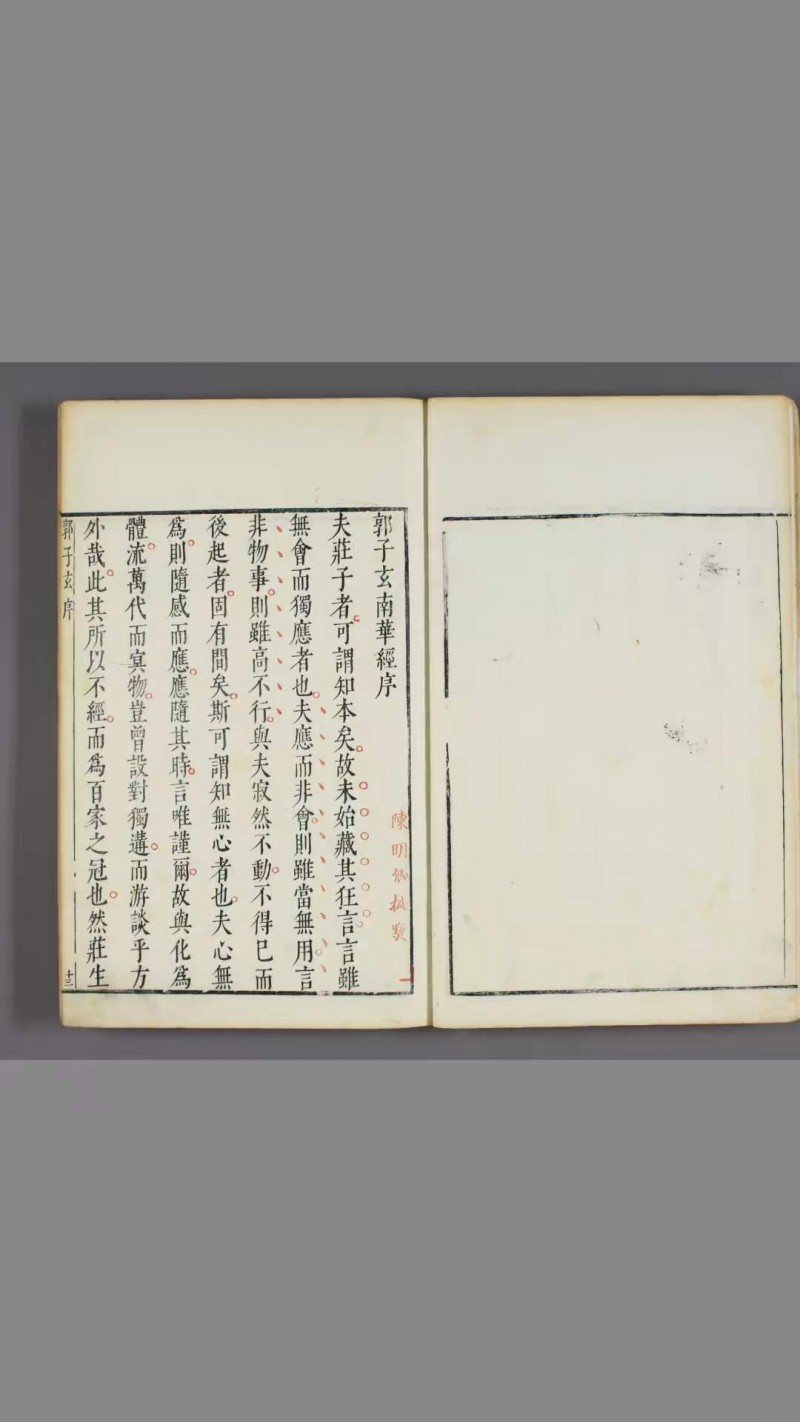 郭子玄南華經序
陳明
夫莊子者可謂知本矣故未始藏其狂言言雖
無會而獨應者也夫應而非會則雖當無用言
非物事則雖高不行與夫寂然不動不得已而
後起者固有間矣斯可謂知無心者也夫心無
為則隨感而應應隨其時言唯謹爾故與化為
體流萬代而冥物豈曾設對獨遘而游談乎方
外哉此其所以不經而為百家之冠也然莊生
郭子玄序
十三